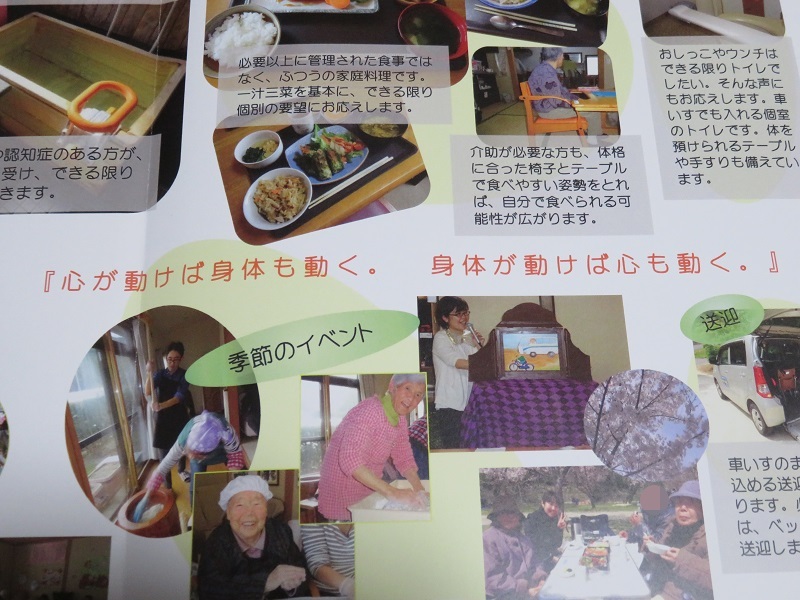 必要以上に管理された食事では
なく、ふつうの家庭料理です。
一汁三菜を基本に、できる限り
個別の要望にお応えします。
おしっこやウンチは
できる限りトイレで
したい。そんな声に
もお応えします。車
いすでも入れる個室
のトイレです。体を
預けられるテーブル
や手すりも備えてい
ます。
認知症のある方が、
受け、できる限り
きます。
介助が必要な方も、体格
に合った椅子とテーブル
で食べやすい姿勢をとれ
ば、自分で食べられる可
能性が広がります。
『心が動けば身体も動く。 身体が動けば心も動く。』
季節のイベント
送迎
車いすのま
込める送迎
ります。
は、ベッ
送迎しま